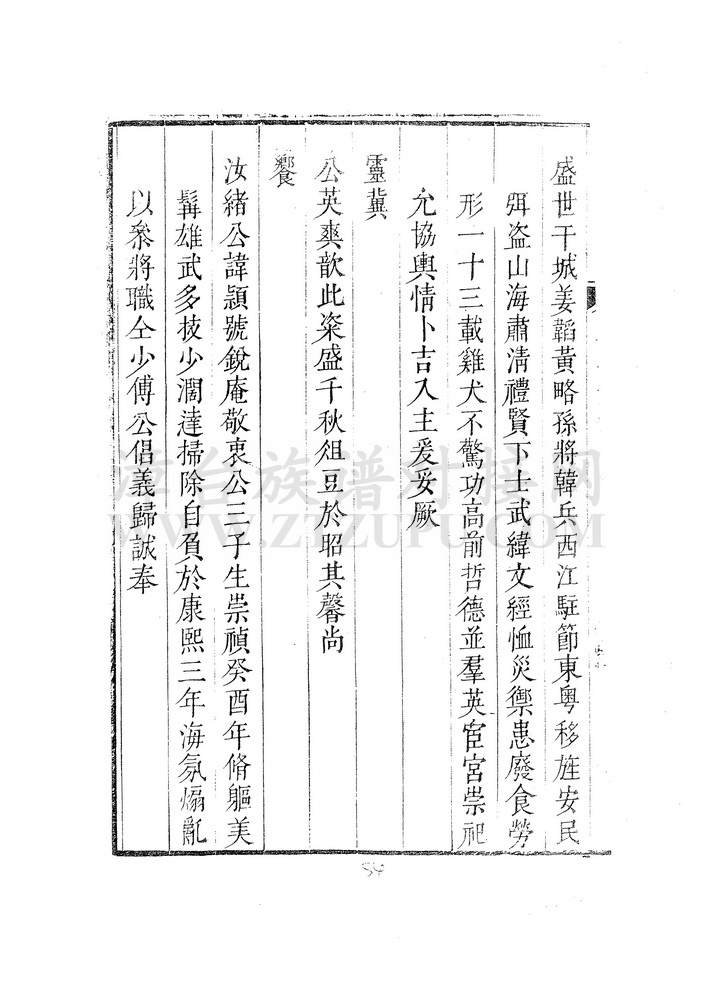 盛世干城姜韜黃略孫將韓兵西江駐節東粤移旌安民
弭盗山海肅清禮賢下士武緯文經恤災禦患廢食勞
形一十三載雞犬不驚功高前哲德並羣英宦宮崇祀
允協輿情卜吉入主爰妥厥
靈冀
公英爽歆此粢盛千秋俎豆於昭其馨尚
饗
汝緒公諱頴號銳庵敬衷公三子生崇禎癸酉年脩軀美
髯雄武多技少濶達掃除自負於康熙三年海氛煽亂
以叅將職仝少傅公倡義歸誠奉
漳台族谱对接网
WWW.ZTZUPU.COM
54